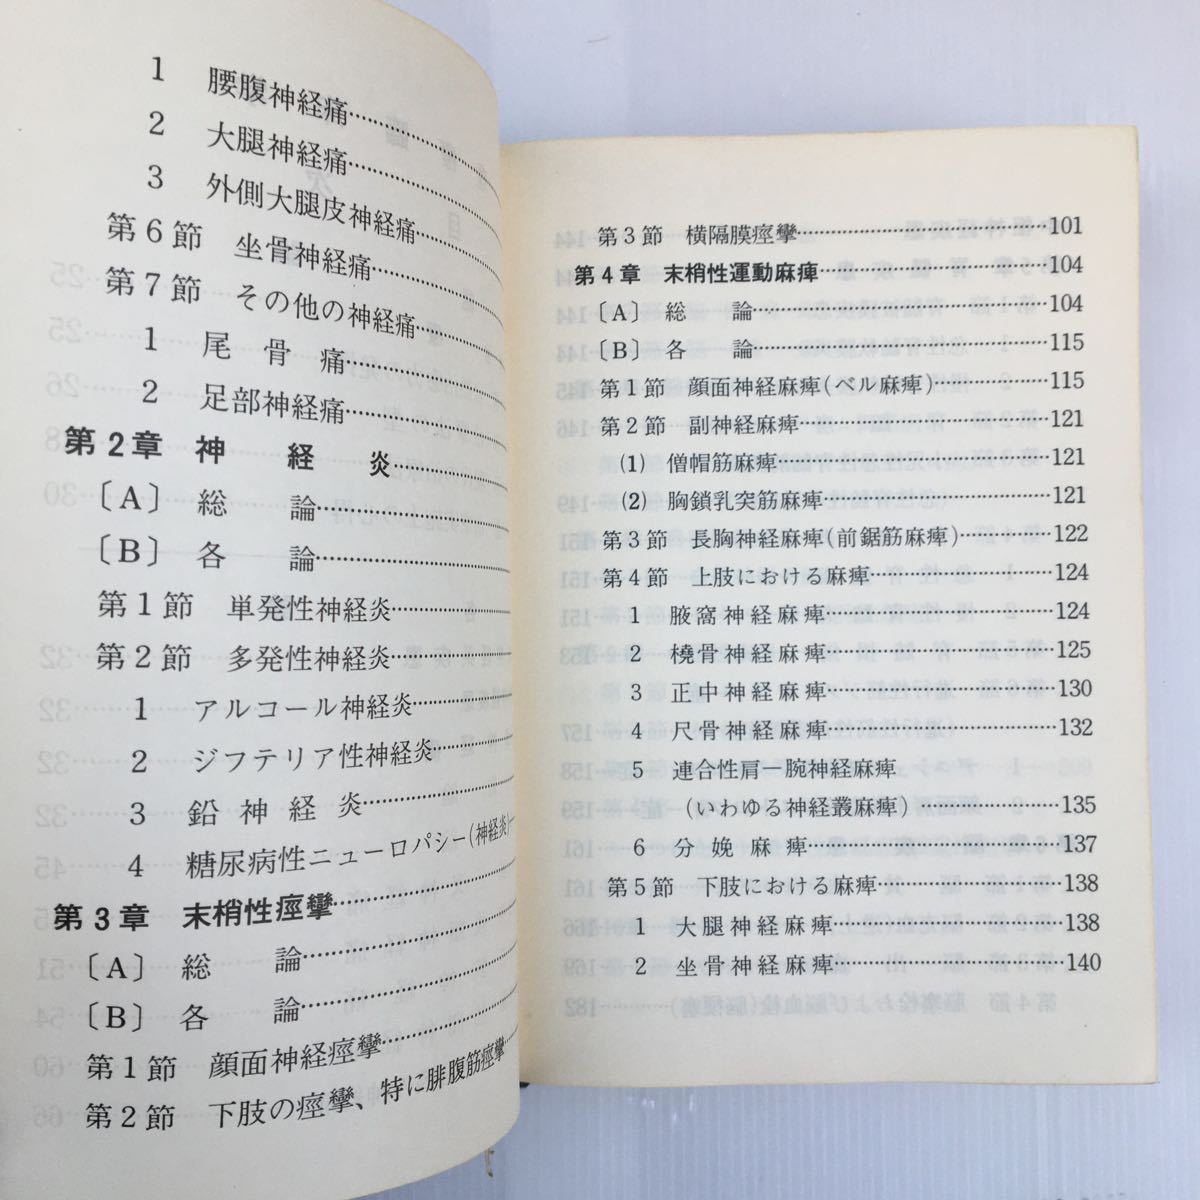 1 腰腹神経痛
2 大腿神経痛
3 外側大腿皮神経痛
第6節 坐骨神経痛
第7節 その他の神経痛
1 尾骨痛
2 足部神経痛
第2章 神経炎
〔A〕 総論
〔B〕 各論
第1節 単発性神経炎
第2節 多発性神経炎
1 アルコール神経炎
2 ジフテリア性神経炎
3 鉛神経炎
4 糖尿病性ニューロパシー(神経炎)
第3章 末梢性痙攣
〔A〕 総論
〔B〕 各論
第1節 顔面神経痙攣
第2節 下肢の痙攣、特に腓腹筋痙攣
第3節 横隔膜痙攣 101
第4章 末梢性運動麻痺 104
〔A〕 総論 104
〔B〕 各論 115
第1節 顔面神経麻痺(ベル麻痺) 115
第2節 副神経麻痺 121
(1) 僧帽筋麻痺 121
(2) 胸鎖乳突筋麻痺 121
第3節 長胸神経麻痺(前鋸筋麻痺) 122
第4節 上肢における麻痺 124
1 腋窩神経麻痺 124
2 橈骨神経麻痺 125
3 正中神経麻痺 130
4 尺骨神経麻痺 132
5 連合性肩ー腕神経麻痺
(いわゆる神経叢麻痺) 135
6 分娩麻痺 137
第5節 下肢における麻痺 138
1 大腿神経麻痺 138
2 坐骨神経麻痺 140